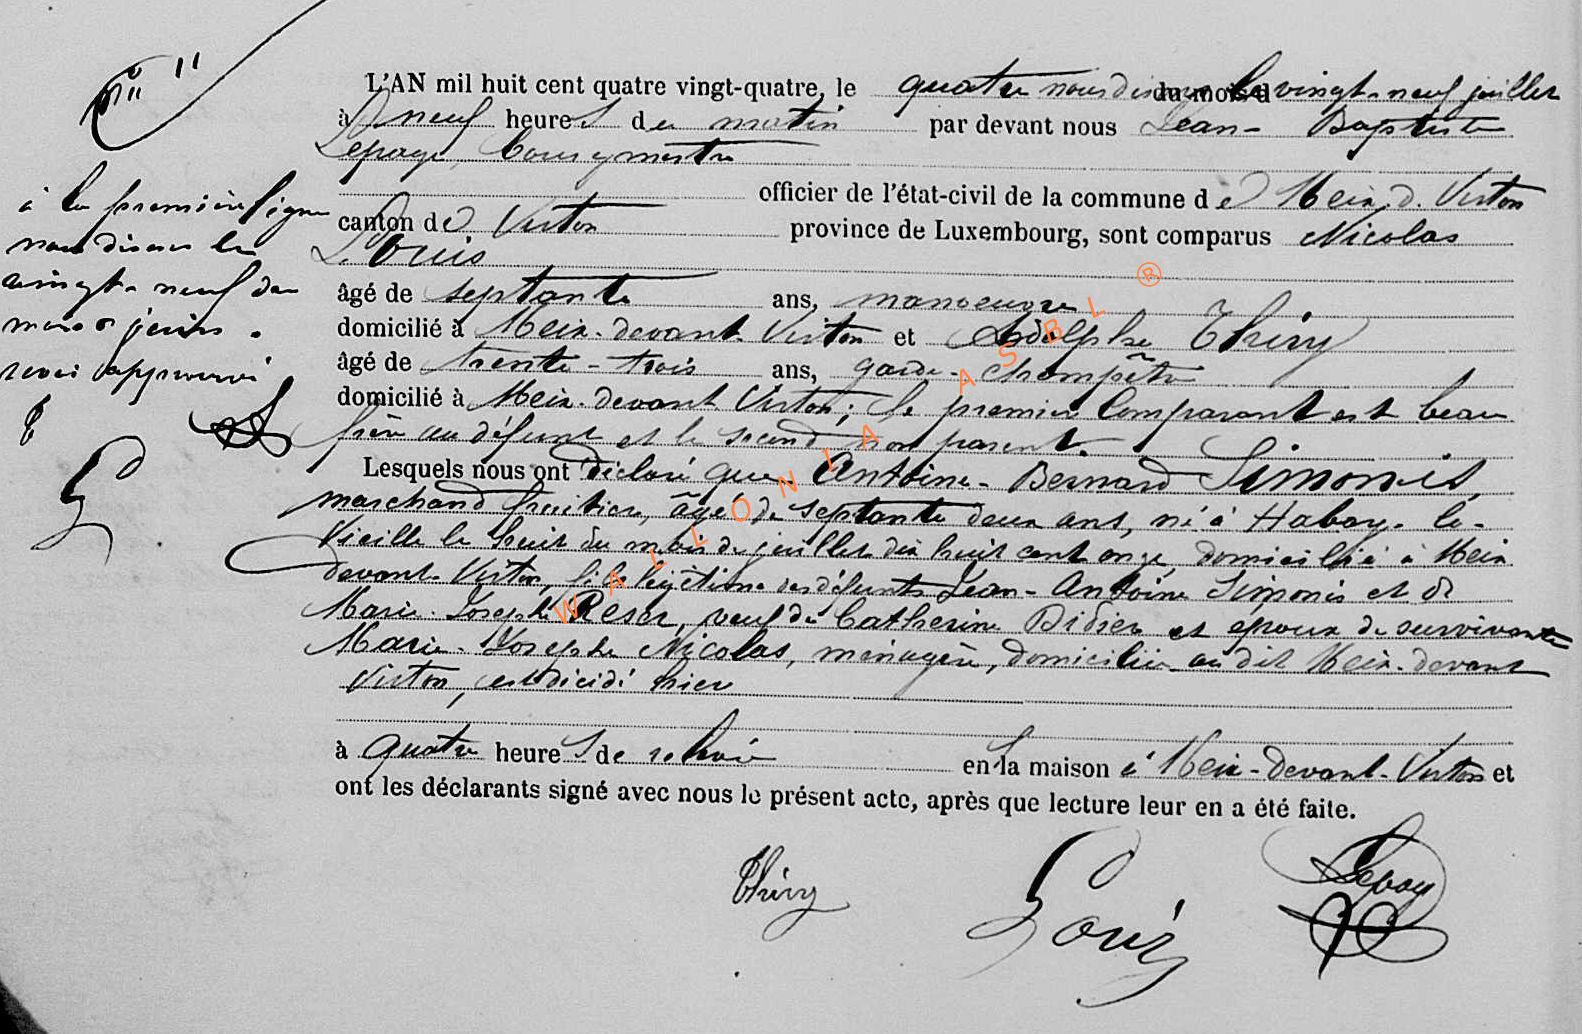 N° 11
L'AN mil huit cent quatre vingt-quatre, le quatre nous disons le vingt-neuf juillet
du mois d
à neuf heures du matin par devant nous Jean-Baptiste
Lepage, bourgmestre
officier de l'état-civil de la commune de Meix-d.-Virton
canton de Virton province de Luxembourg, sont comparus Nicolas
Louis
âgé de septante ans, manoeuvre
domicilié à Meix-devant-Virton et Adolphe Thiry
âgé de trente-trois ans, garde-champêtre
domicilié à Meix-devant Virton; le premier comparant est beau
frère au défunt et le second non parent.
Lesquels nous ont déclaré que Antoine-Bernard Simonis,
marchand fruitier, âgé de septante deux ans, né à Habay-la-
Vieille le huit du mois de juillet dix huit cent onze, domicilié à Meix
devant Virton, fils légitime des défunts Jean-Antoine Simonis et de
Marie-Joseph Reser, veuf de Catherine Didier et époux de survivante
Marie-Josephe Nicolas, ménagère, domiciliée au dit Meix-devant
Virton, est décédé hier
à quatre heures de relevée en la maison à Meix-devant-Virton et
ont les déclarants signé avec nous le présent acte, après que lecture leur en a été faite.
à la première ligne
nous disons le
vingt-neuf du
mois
approuvé
T
L
Thiry
Louis
Lepage
WALLONIA ASBL ®